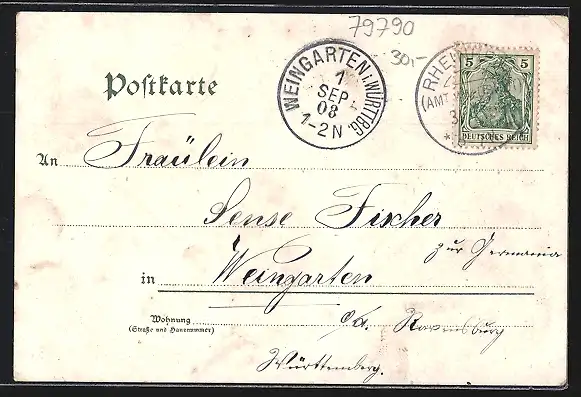 79790
30,-
WEINGARTEN i. WÜRTTBG.
1
SEP
08
1-2 N
RHEI
(AMT
5 5
DEUTSCHES REICH
Postkarte
An Fräulein
Sense Fischer
zur Germania
in Weingarten
Wohnung
(Straße und Hausnummer)
o/a. Ravensburg
Württemberg.